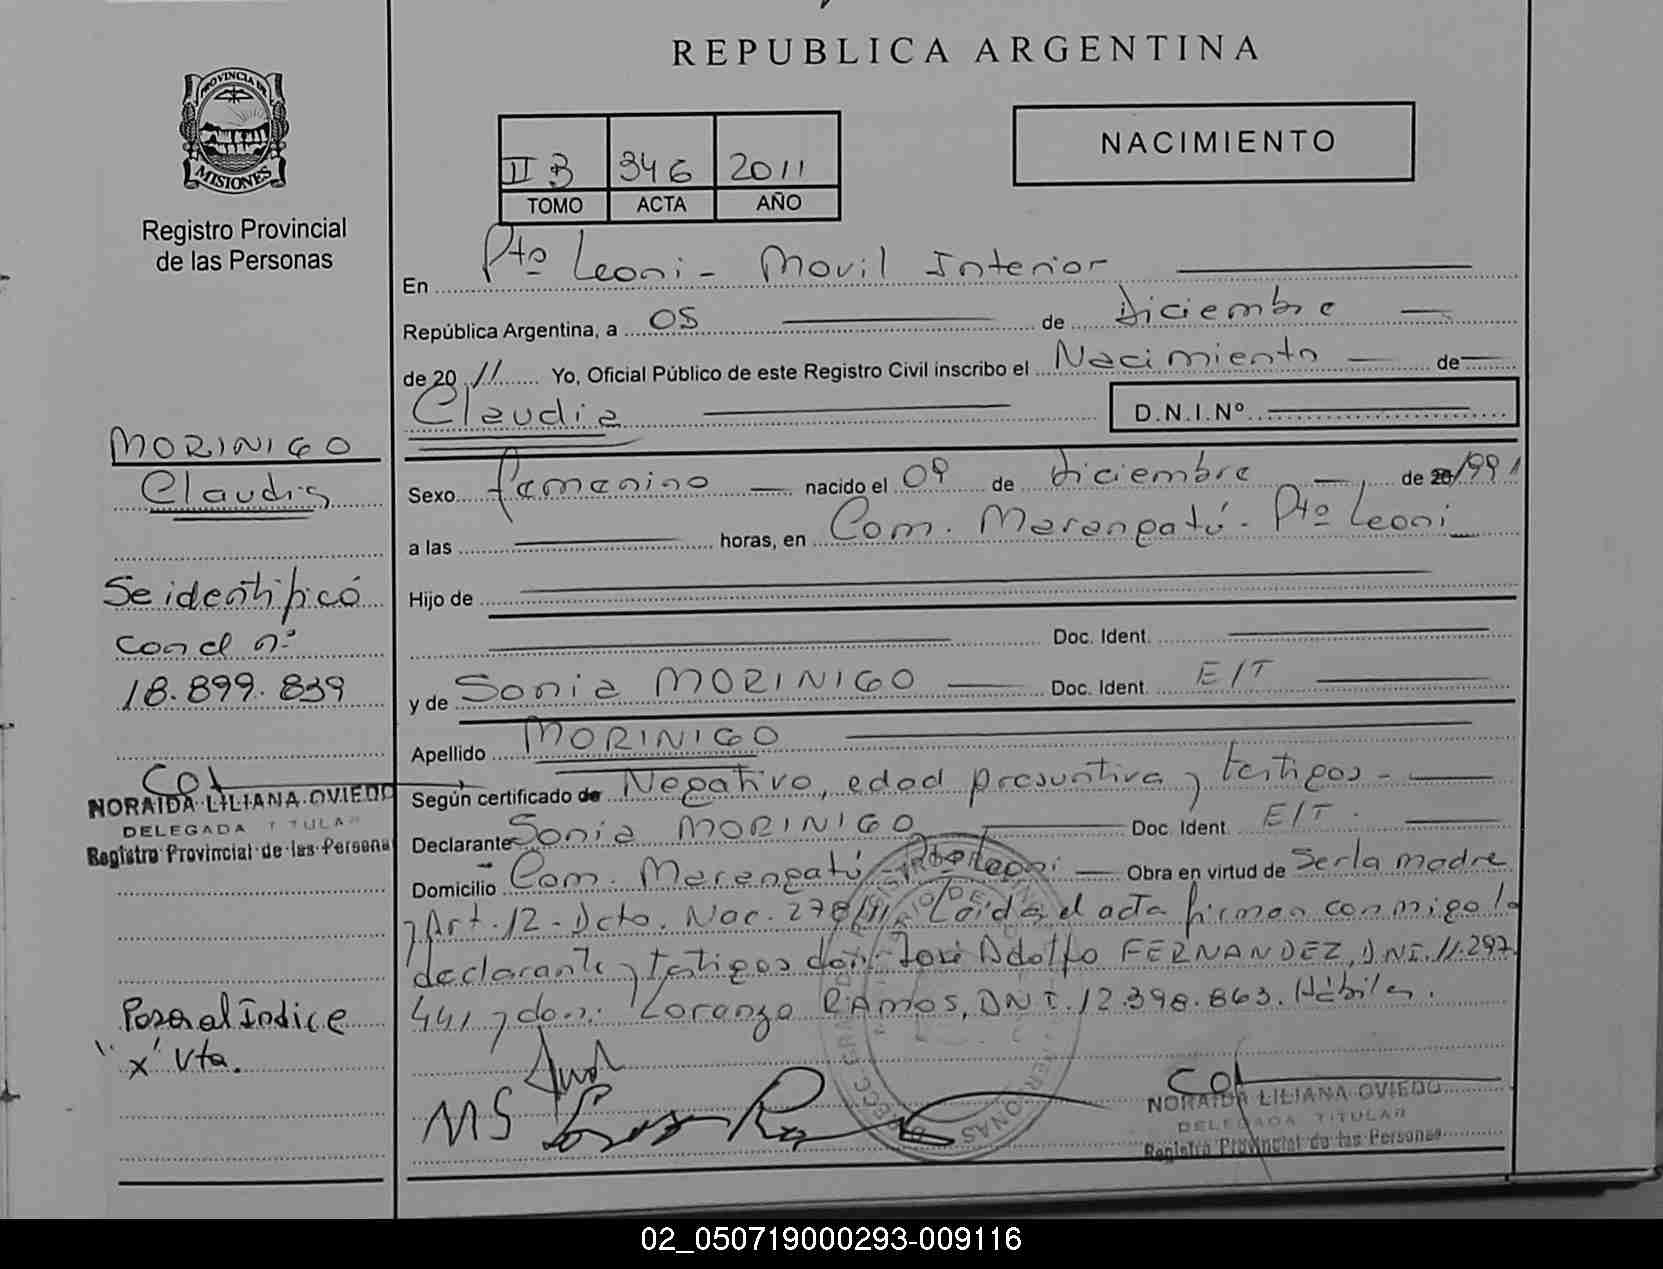 REPUBLICA ARGENTINA
PROVINCIA DE
MISIONES
Registro Provincial
de las Personas
II B 346 2011
TOMO ACTA AÑO
NACIMIENTO
En Pto Leoni - Movil Interior
República Argentina, a 05 de diciembre
de 20 11 Yo, Oficial Público de este Registro Civil inscribo el Nacimiento de
Claudia D.N.I.Nº
Sexo femenino nacido el 09 de diciembre de 1991
a las horas, en Com. Marangatú - Pto Leoni
Hijo de
Doc. Ident.
y de Sonia MORINIGO Doc. Ident. E/T
Apellido MORINIGO
Según certificado de Negativo, edad presuntiva y testigos -
Declarante Sonia MORINIGO Doc. Ident. E/T.
Domicilio Com. Marangatú - Pto Leoni Obra en virtud de Ser la madre
y Art. 12 - Dcto. Nac. 278/11. Leída el acta firman conmigo la
declarante y testigos don: José Adolfo FERNANDEZ, DNI. 11.297.
441 y don: Lorenzo RAMOS, DNI. 12.398.863. Hábiles.
MS
NORAIDA LILIANA OVIEDO
DELEGADA TITULAR
Registro Provincial de las Personas
MORINIGO
Claudia
Se identificó
con el nº
18.899.839
NORAIDA LILIANA OVIEDO
DELEGADA TITULAR
Registro Provincial de las Persona
Pasa al Indice
"x" Vta.
02_050719000293-009116